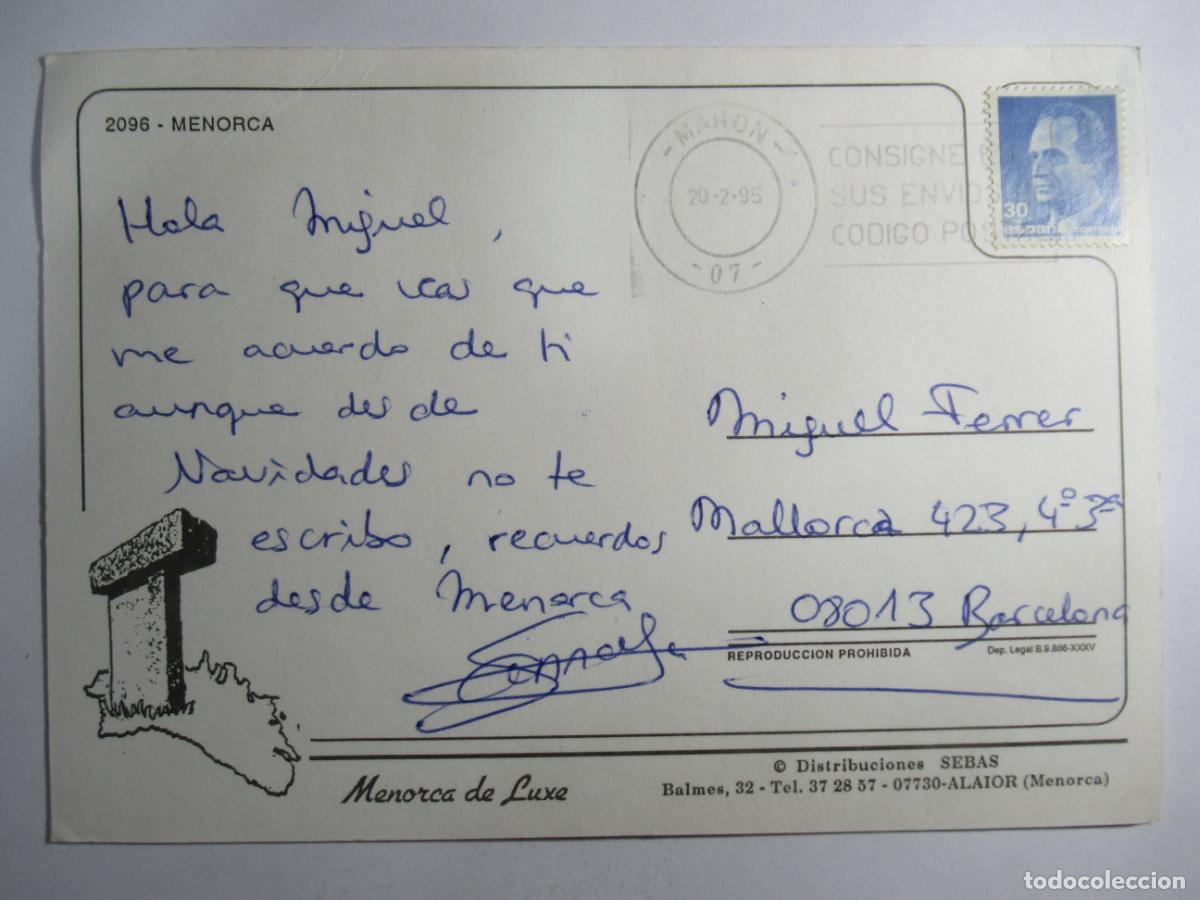 2096 - MENORCA
- MAHON -
20-2-95
- 07 -
CONSIGNE
SUS ENVIOS
CODIGO POSTAL
30
españa correos
Hola Miguel,
para que veas que
me acuerdo de ti
aunque desde
Navidades no te
escribo, recuerdos
desde Menorca
Miguel Ferrer
Mallorca 423, 4º 3ª
08013 Barcelona
REPRODUCCION PROHIBIDA
Dep. Legal B.9.886-XXXV
Menorca de Luxe
© Distribuciones SEBAS
Balmes, 32 - Tel. 37 28 57 - 07730-ALAIOR (Menorca)
todocoleccion